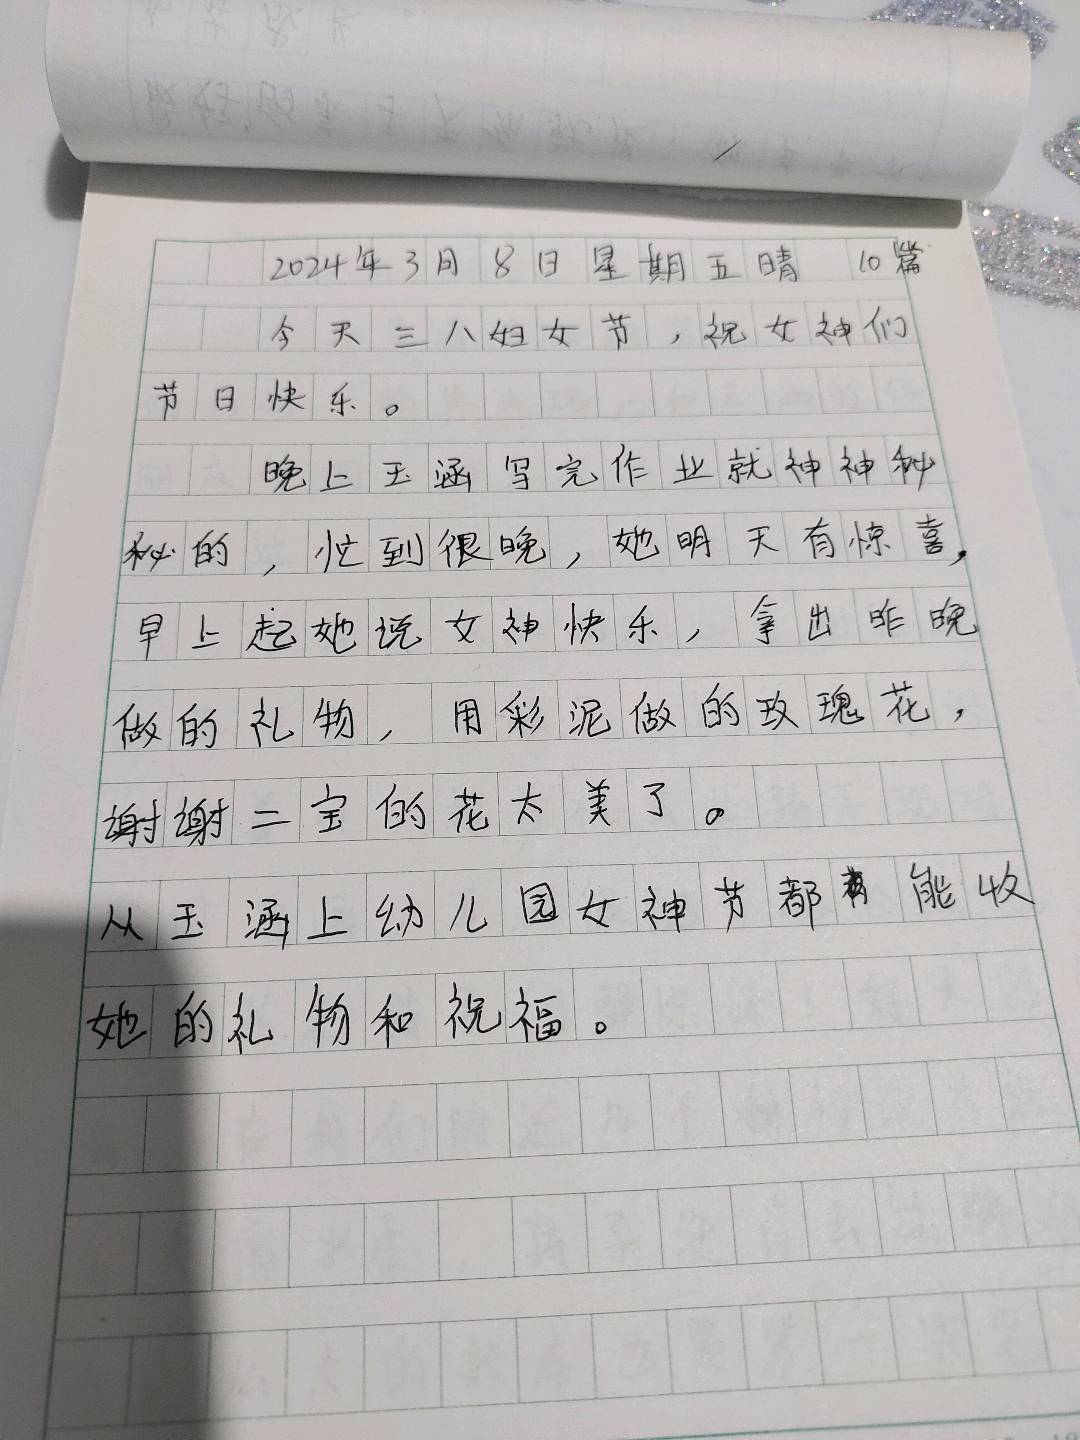 2024年3月8日星期五晴 10篇
今天三八妇女节，祝女神们
节日快乐。
晚上玉涵写完作业就神神秘
秘的，忙到很晚，她明天有惊喜，
早上起她说女神快乐，拿出昨晚
做的礼物，用彩泥做的玫瑰花，
谢谢二宝的花太美了。
从玉涵上幼儿园女神节都能收
她的礼物和祝福。